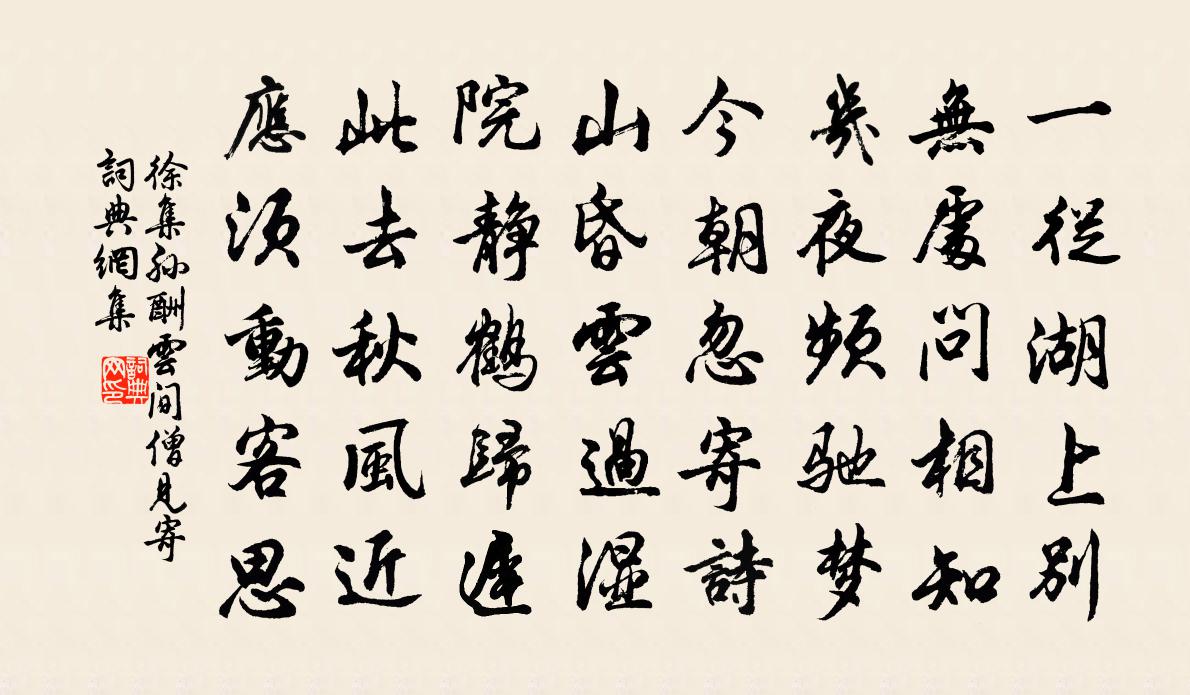 一從湖上別
無處問相知
幾夜頻馳梦
今朝忽寄詩
山昏雲過濕
院靜鶴歸遲
此去秋風近
應須動客思
徐集孙酬雲间僧見寄
詞典網集
詞典
网印